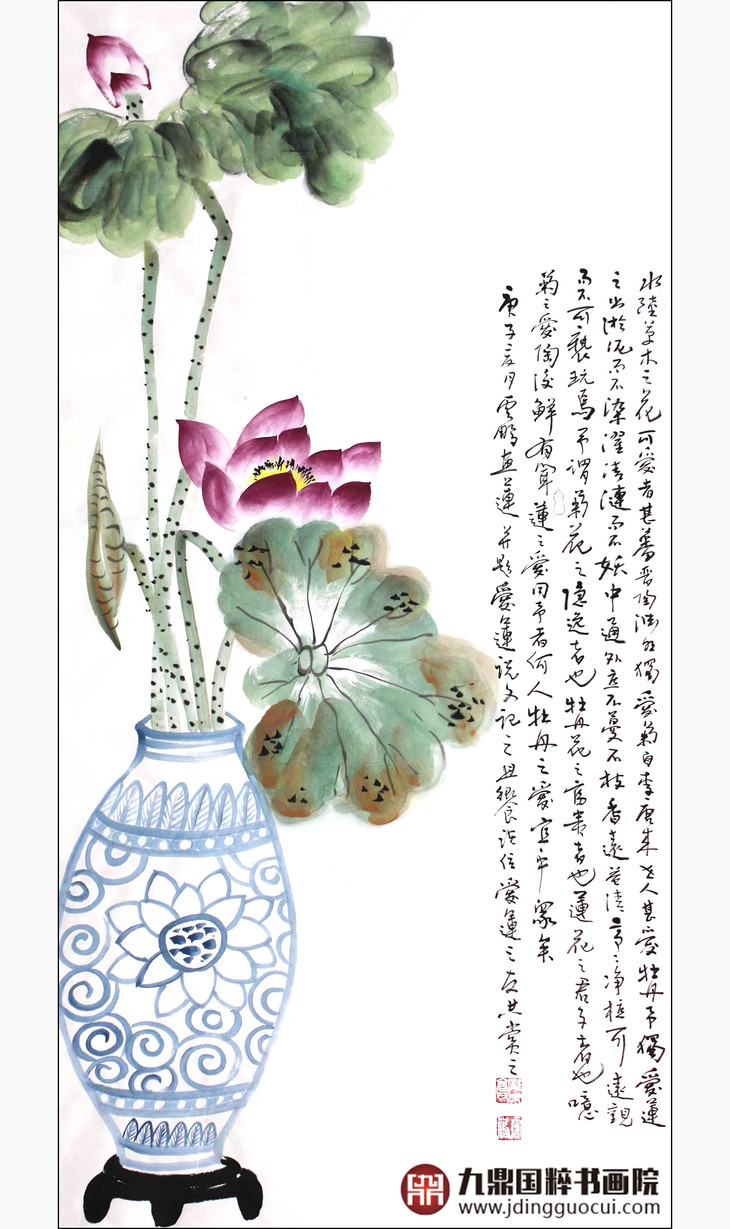 水陸草木之花可愛者甚蕃晋陶渊明獨愛菊自李唐来世人甚愛牡丹予獨愛蓮
之出淤泥而不染濯清漣而不妖中通外直不蔓不枝香遠益清亭亭净植可遠觀
而不可褻玩焉予謂菊花之隐逸者也牡丹花之富貴者也蓮花之君子者也噫
菊之愛陶後鮮有聞蓮之愛同予者何人牡丹之愛宜乎衆矣
庚子六月雲鵬畫蓮并題愛蓮説文記之且饗諸位愛蓮之友共賞之
九鼎国粹书画院
www.jdingguocui.com